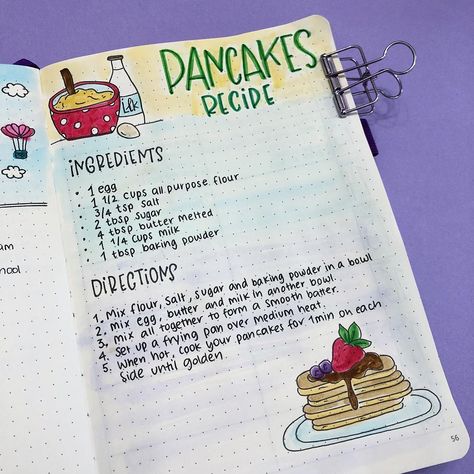 PANCAKES
RECIPE
ilk
INGREDIENTS
• 1 egg
• 1 1/2 cups all purpose flour
• 3/4 tsp salt
• 2 tbsp sugar
• 4 tbsp butter melted
• 1 1/4 cups milk
• 1 tbsp baking powder
DIRECTIONS
1. Mix flour, salt, sugar and baking powder in a bowl
2. mix egg, butter and milk in another bowl.
3. mix all together to form a smooth batter.
4. Set up a frying pan over medium heat.
5. When hot, cook your pancakes for 1min on each
side until golden
56